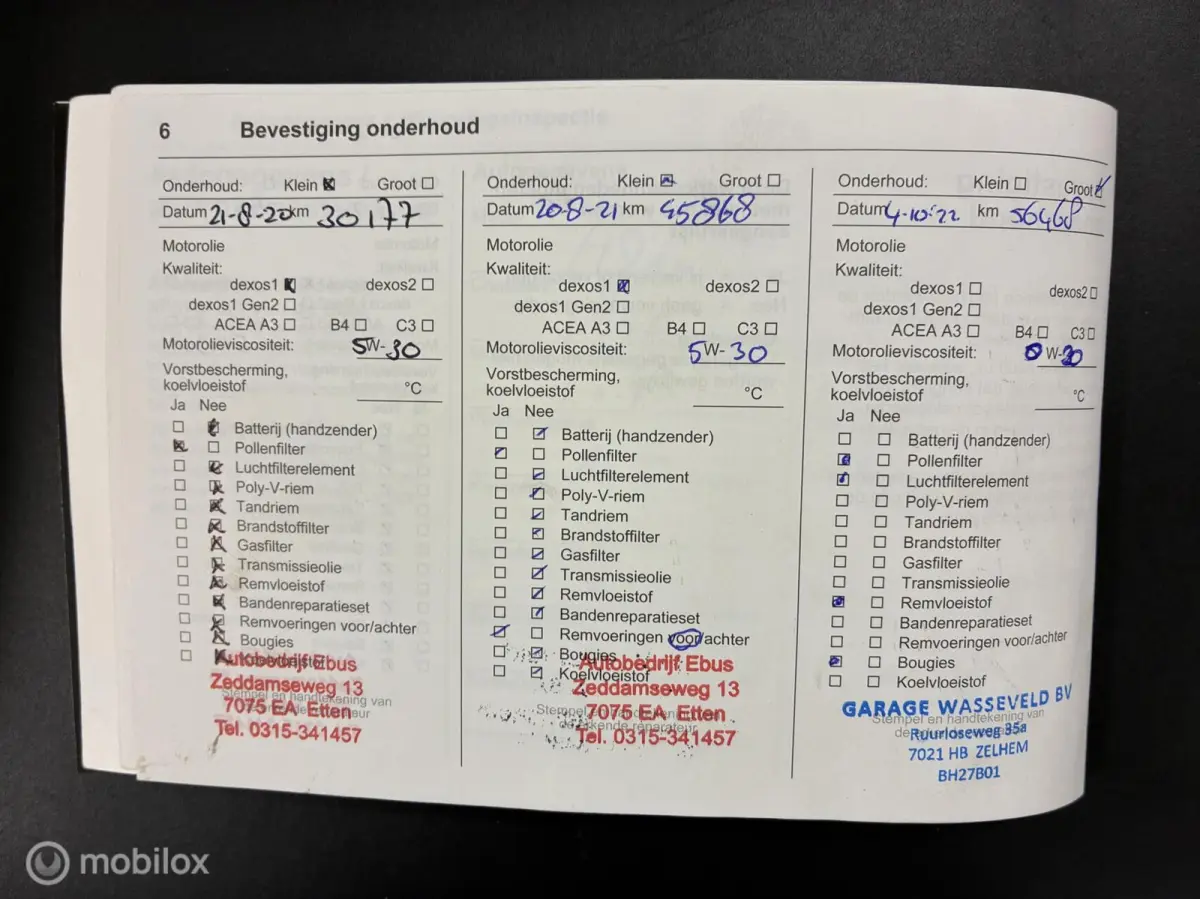 6 Bevestiging onderhoud
Onderhoud: Klein Groot
Datum 21-8-20 km 30177
Motorolie
Kwaliteit:
dexos1 dexos2
dexos1 Gen2
ACEA A3 B4 C3
Motorolieviscositeit: 5W-30
Vorstbescherming,
koelvloeistof °C
Ja Nee
Batterij (handzender)
Pollenfilter
Luchtfilterelement
Poly-V-riem
Tandriem
Brandstoffilter
Gasfilter
Transmissieolie
Remvloeistof
Bandenreparatieset
Remvoeringen voor/achter
Bougies
Autobedrijf Ebus
Zeddamseweg 13
Stempel en handtekening van
7075 EA Etten
Tel. 0315-341457
Onderhoud: Klein Groot
Datum 20-8-21 km 45868
Motorolie
Kwaliteit:
dexos1 dexos2
dexos1 Gen2
ACEA A3 B4 C3
Motorolieviscositeit: 5W-30
Vorstbescherming,
koelvloeistof °C
Ja Nee
Batterij (handzender)
Pollenfilter
Luchtfilterelement
Poly-V-riem
Tandriem
Brandstoffilter
Gasfilter
Transmissieolie
Remvloeistof
Bandenreparatieset
Remvoeringen voor/achter
Bougies
Koelvloeistof
Autobedrijf Ebus
Zeddamseweg 13
Stempel
7075 EA Etten
Tel. 0315-341457
Onderhoud: Klein Groot
Datum 4-10-22 km 56468
Motorolie
Kwaliteit:
dexos1 dexos2
dexos1 Gen2
ACEA A3 B4 C3
Motorolieviscositeit: 0W-20
Vorstbescherming,
koelvloeistof °C
Ja Nee
Batterij (handzender)
Pollenfilter
Luchtfilterelement
Poly-V-riem
Tandriem
Brandstoffilter
Gasfilter
Transmissieolie
Remvloeistof
Bandenreparatieset
Remvoeringen voor/achter
Bougies
Koelvloeistof
GARAGE WASSEVELD BV
Stempel en handtekening van
Ruurloseweg 35a
7021 HB ZELHEM
BH27B01
mobilox